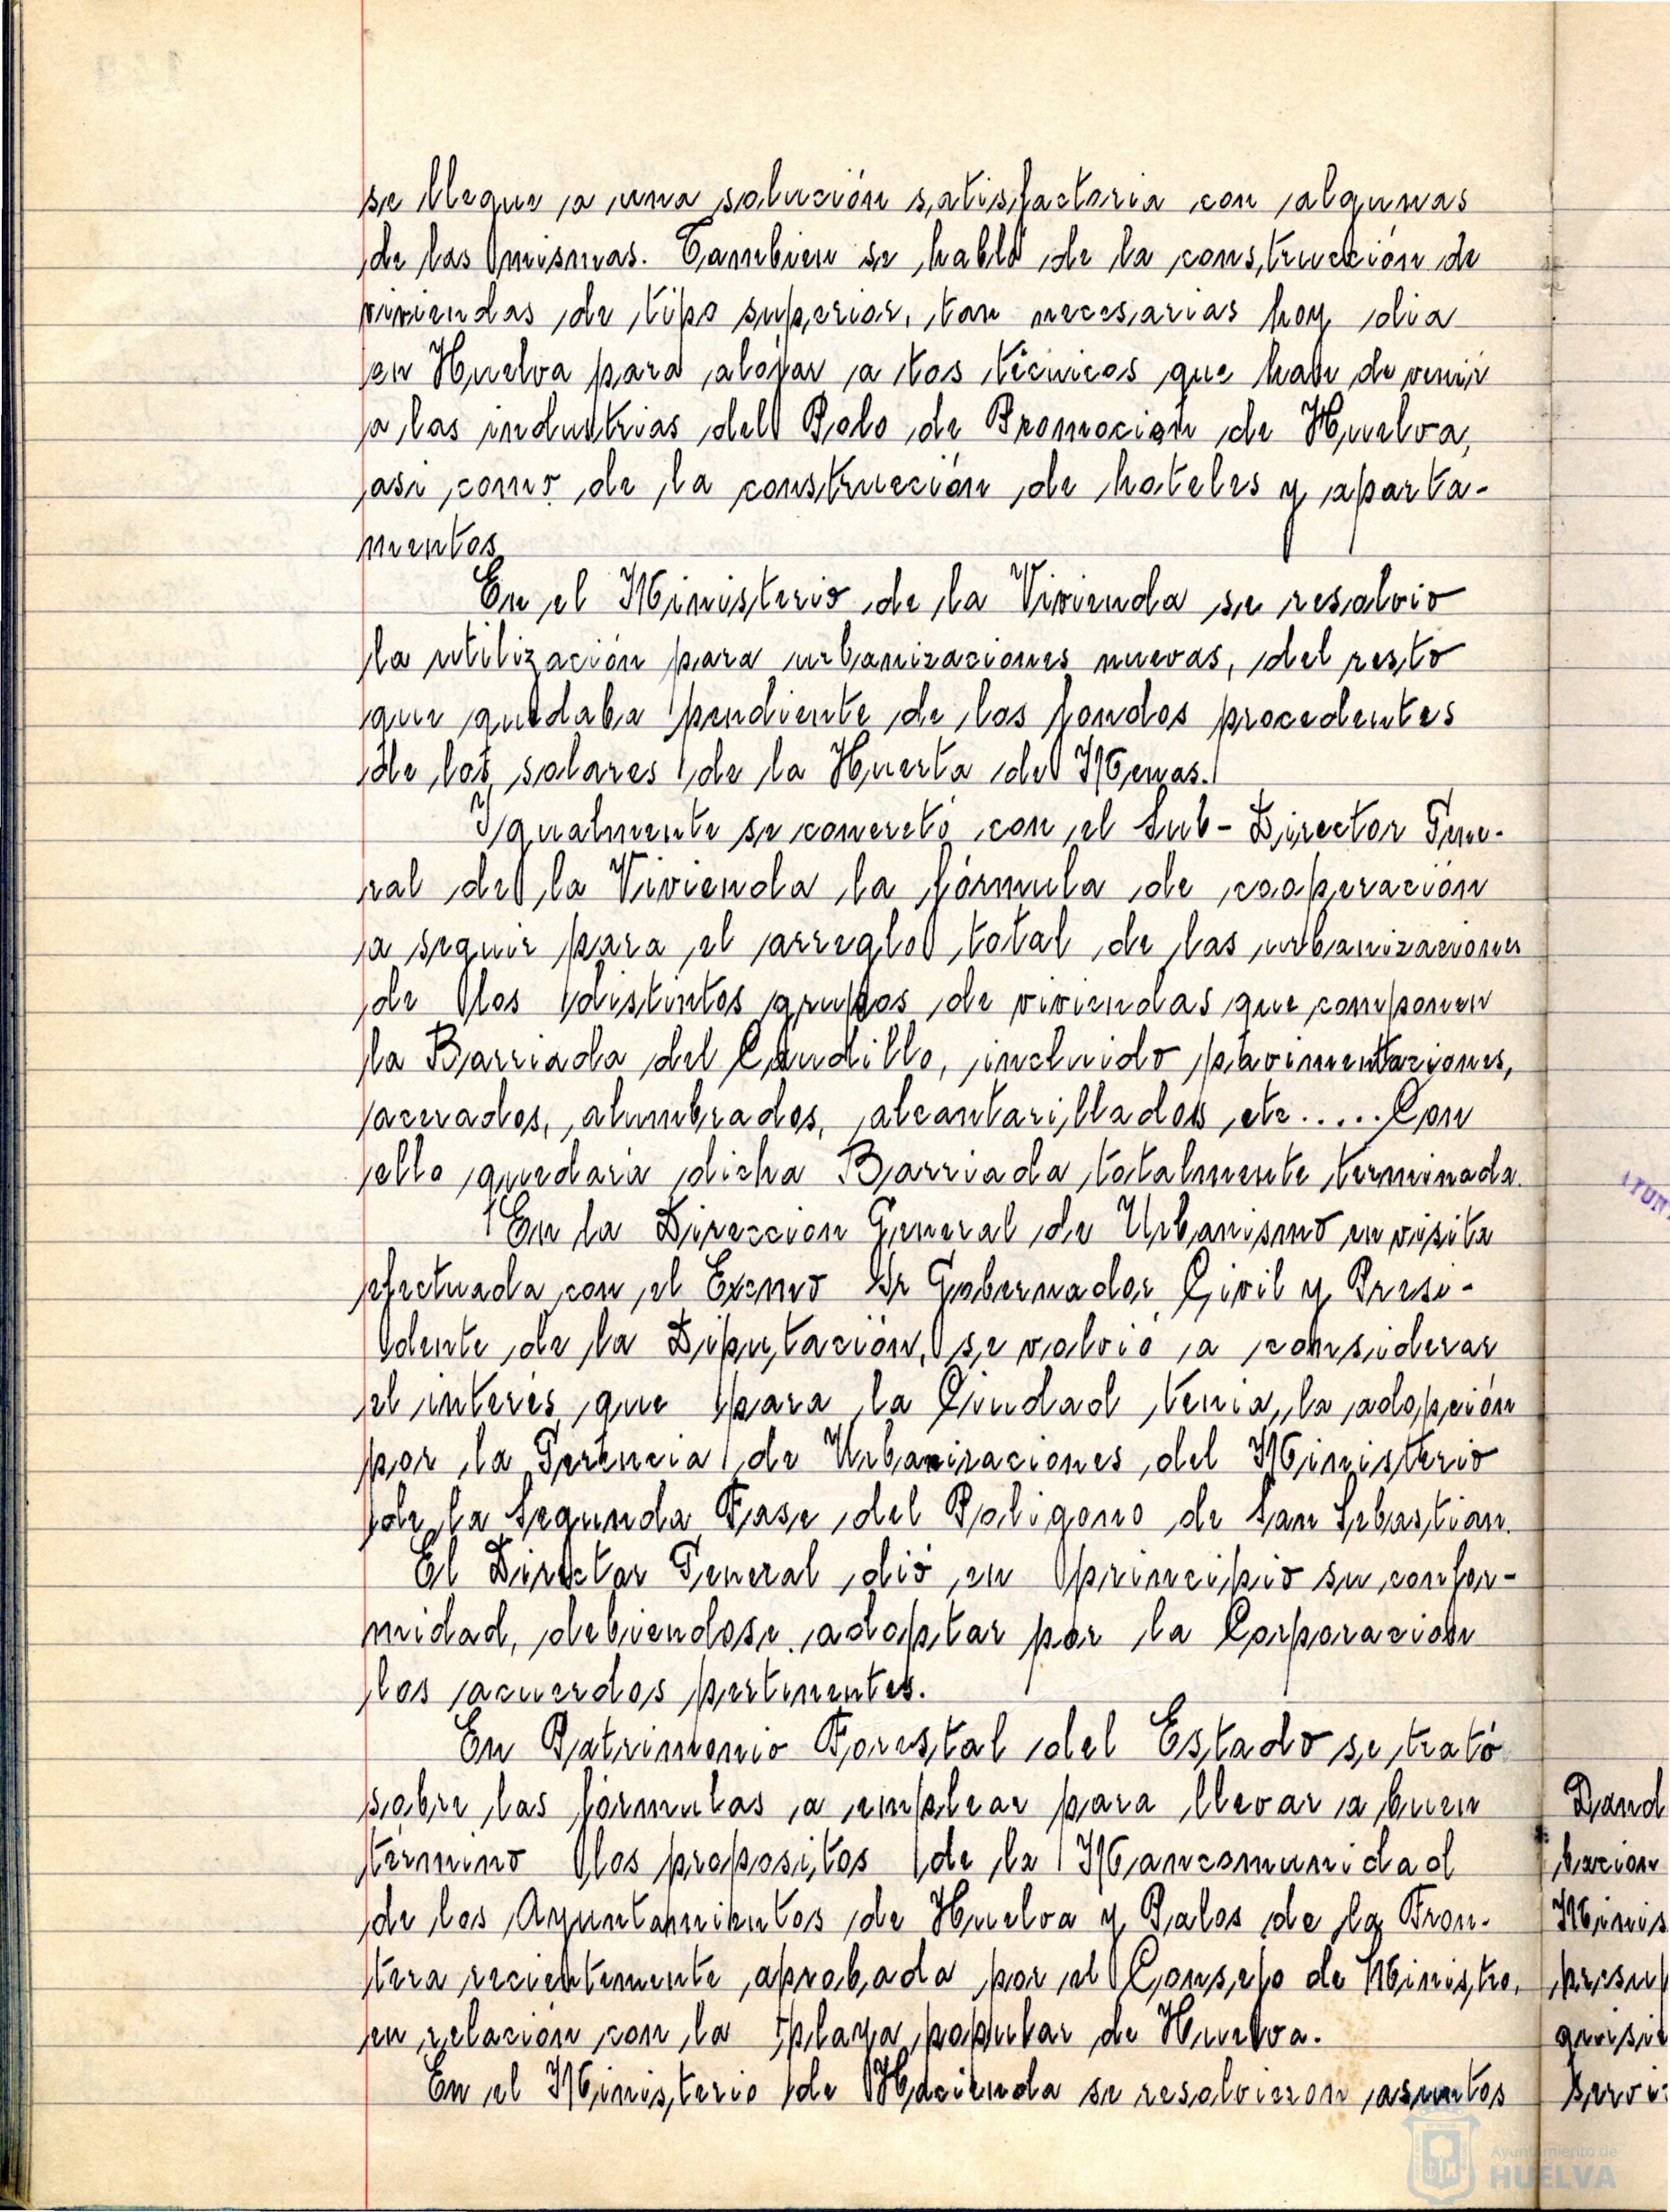 se llegue a una solución satisfactoria con algunas
de las mismas. Tambien se habló de la construcción de
viviendas de tipo superior, tan necesarias hoy dia
en Huelva para alojar a los técnicos que han de venir
a las industrias del Polo de Promoción de Huelva,
asi como de la construcción de hoteles y aparta-
mentos
En el Ministerio de la Vivienda se resolvio
la utilización para urbanizaciones nuevas, del resto
que quedaba pendiente de los fondos procedentes
de los solares de la Huerta de Menas.
Igualmente se concretó con el Sub-Director Gene-
ral de la Vivienda la fórmula de cooperación
a seguir para el arreglo total de las urbanizaciones
de los distintos grupos de viviendas que componen
la Barriada del Caudillo, incluido pavimentaciones,
acerados, alumbrados, alcantarillados etc..... Con
ello quedaria dicha Barriada totalmente terminada.
En la Dirección General de Urbanismo en visita
efectuada con el Excmo Sr Gobernador Civil y Presi-
dente de la Diputación, se volvió a considerar
el interés que para la Ciudad tenia, la adopción
por la Gerencia de Urbanizaciones del Ministerio
de la Segunda Fase del Poligono de San Sebastian.
El Director General dió en principio su confor-
midad, debiendose adoptar por la Corporación
los acuerdos pertinentes.
En Patrimonio Forestal del Estado se trató
sobre las fórmulas a emplear para llevar a buen
término los propositos de la Mancomunidad
de los Ayuntamientos de Huelva y Palos de la Fron-
tera recientemente aprobada por el Consejo de Ministro,
en relación con la playa popular de Huelva.
En el Ministerio de Hacienda se resolvieron asuntos
Dand
bacion
Minis
presup
quisit
Servi
Ayuntamiento de
HUELVA